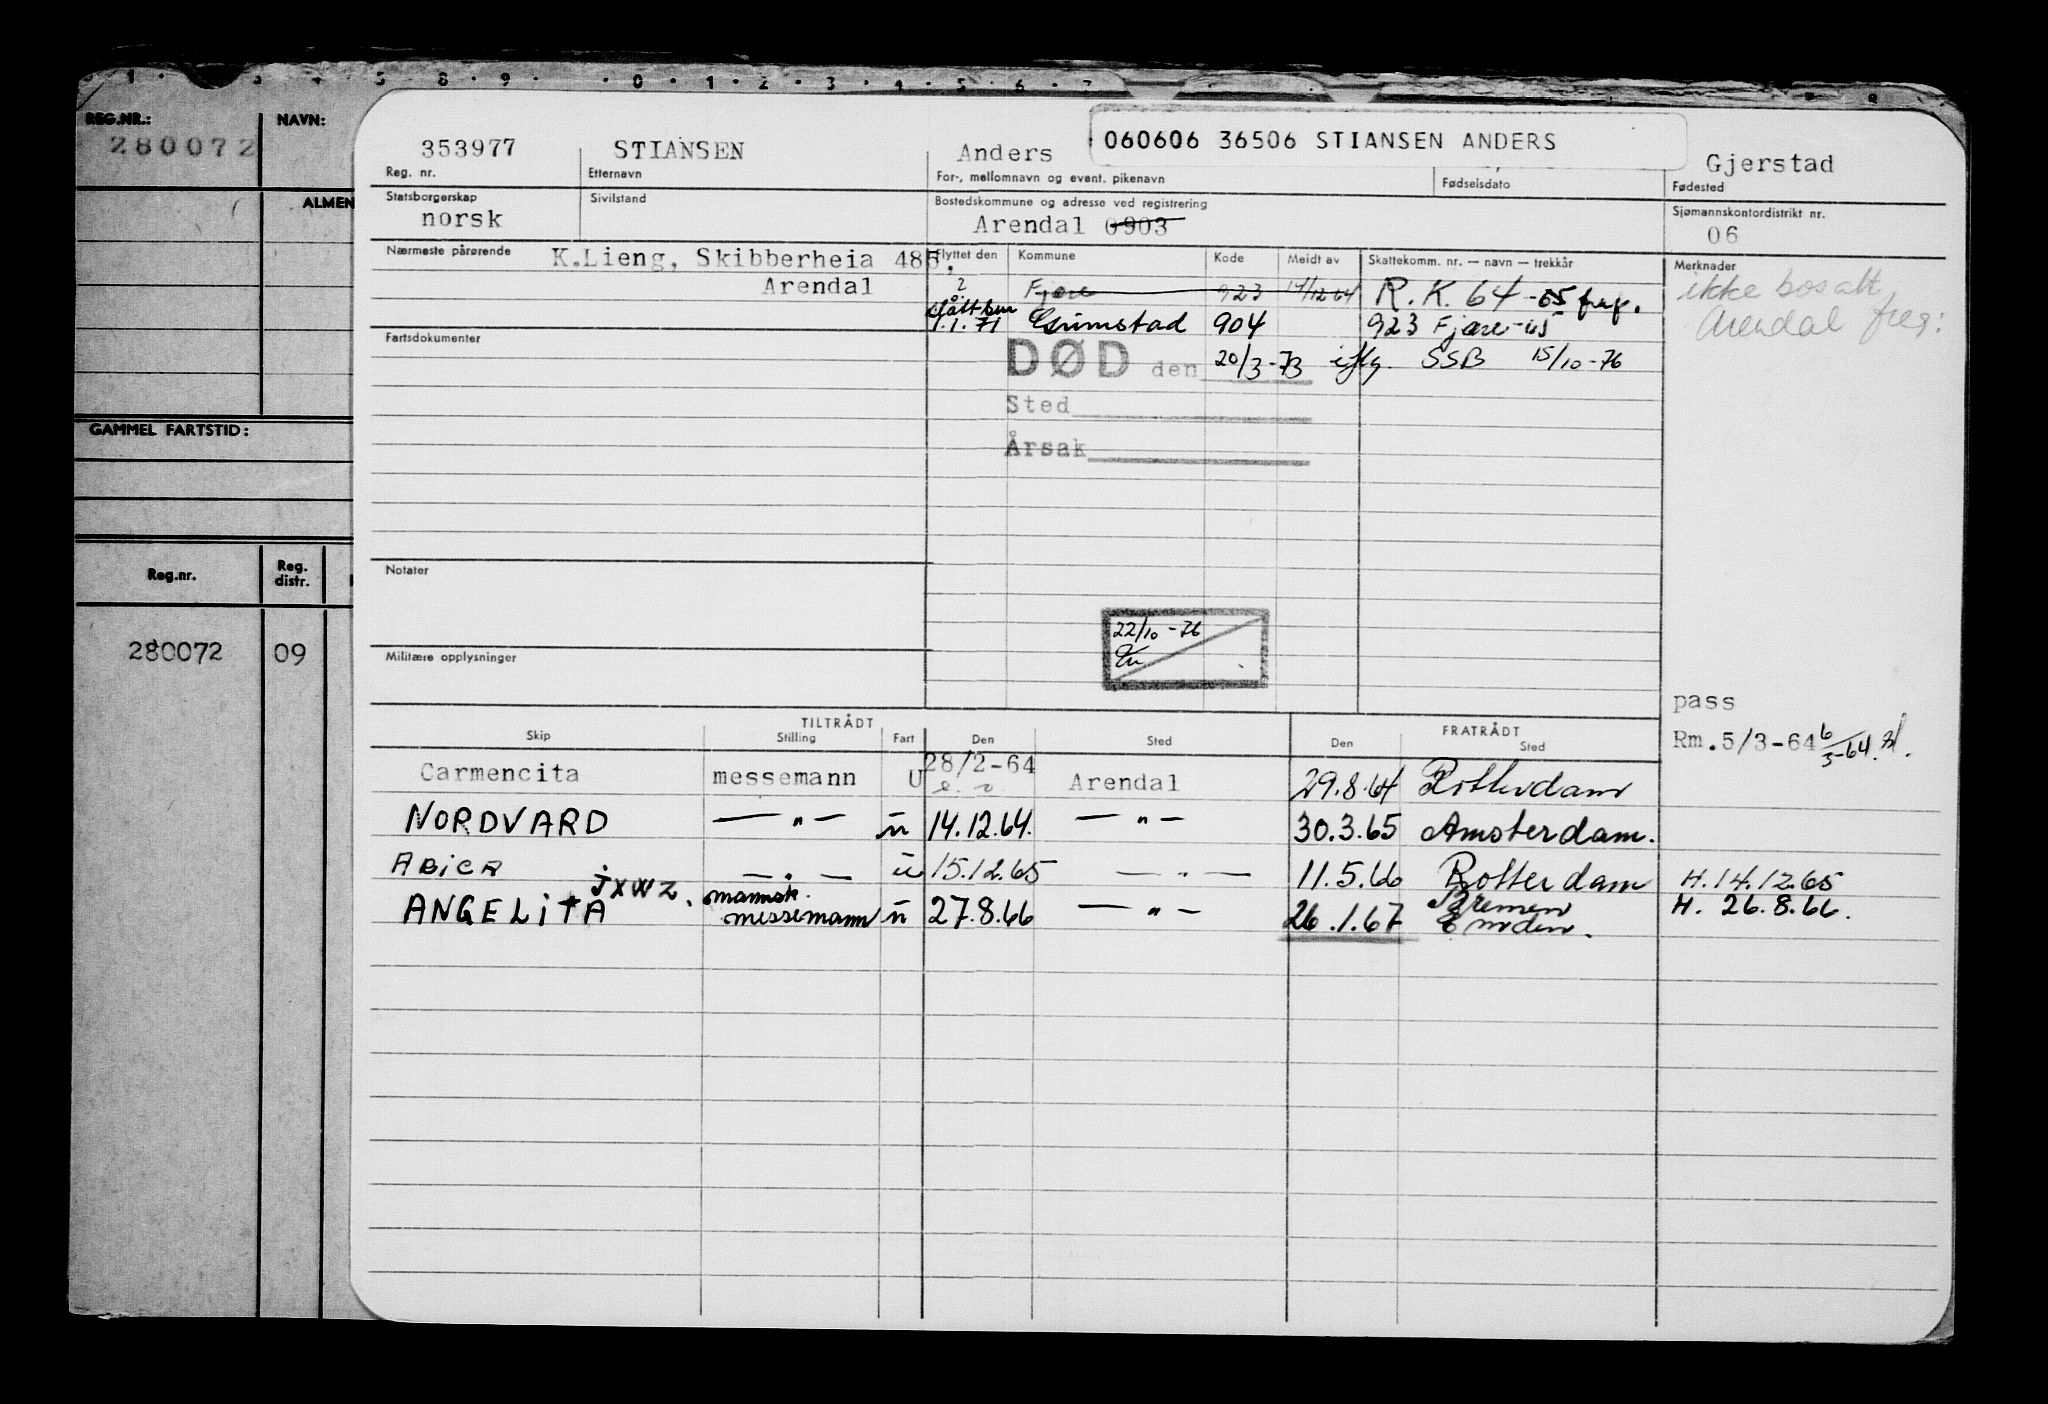 REG.NR.: NAVN:
280072
ALMEN
GAMMEL FARTSTID:
Reg.nr. Reg. distr.
280072 09
353977 STIANSEN Anders 060606 36506 STIANSEN ANDERS Gjerstad
Reg. nr. Etternavn For-, mellomnavn og event. pikenavn Fødselsdato Fødested
Statsborgerskap Sivilstand Bostedskommune og adresse ved registrering Sjømannskontordistrikt nr.
norsk Arendal 0903 06
Nærmeste pårørende K.Lieng, Skibberheia 485, Flyttet den Kommune Kode Meldt av Skattekomm. nr. — navn — trekkår Merknader
Arendal ? Fjære 923 14/12 64 R.K. 64-65 freg. ikke bosatt
1.1.71 Grimstad 904 923 Fjære-65 Arendal freg:
Fartsdokumenter
DØD den 20/3-73 iflg. SSB 15/10-76
Sted
Årsak
Notater
22/10-76
Militære opplysninger
pass
Rm.5/3-64 6/3-64
TILTRÅDT FRATRÅDT
Skip Stilling Fart Den Sted Den Sted
Carmencita messemann U 28/2-64 Arendal 29.8.64 Rotterdam
NORDVARD — " — u 14.12.64. — " — 30.3.65 Amsterdam.
ABICA — " — u 15.12.65 — " — 11.5.66 Rotterdam H.14.12.65
JXWZ. mannsk. Bremen
ANGELITA messemann u 27.8.66 — " — 26.1.67 Emden. H. 26.8.66.